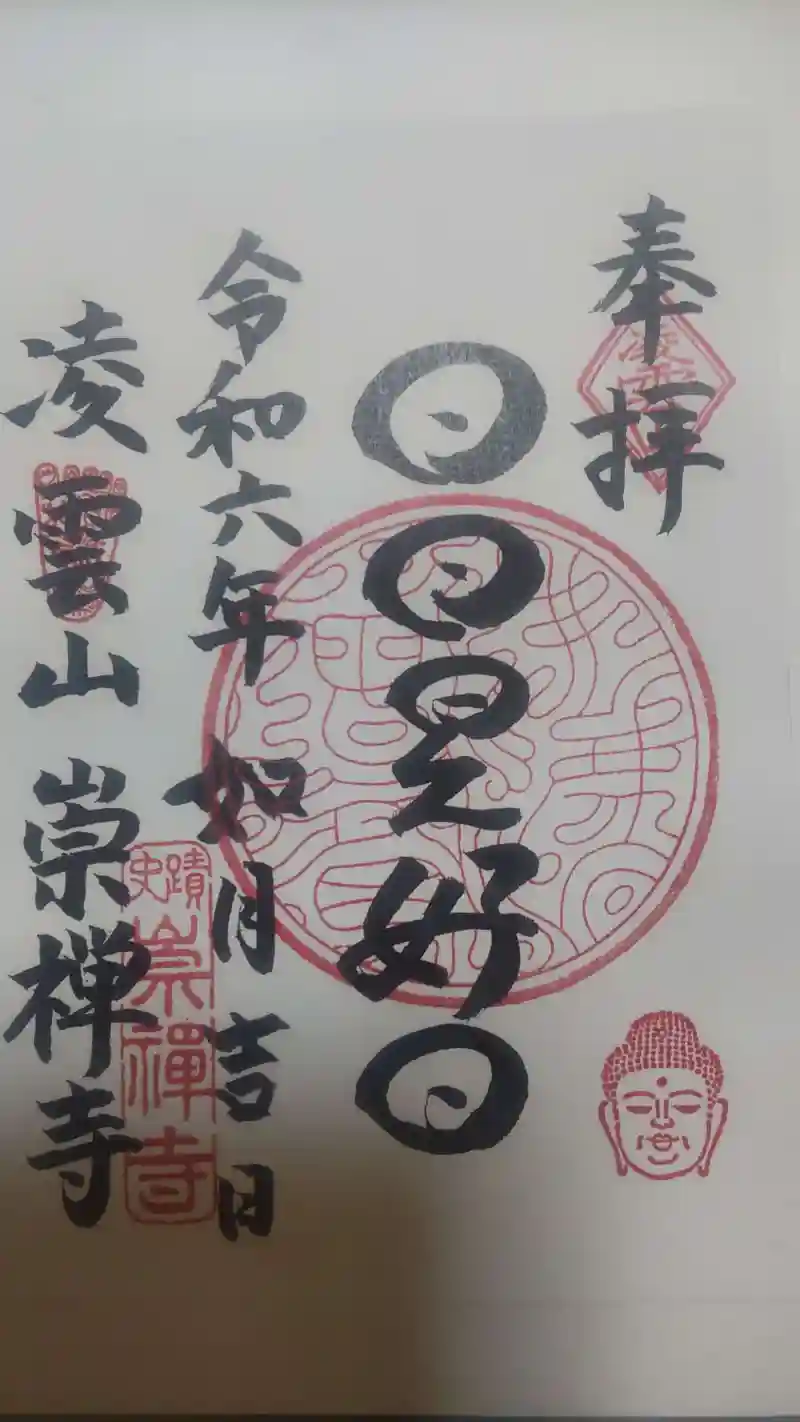 奉拝
日日是好日
令和六年如月吉日
凌雲山崇禅寺
凌雲
史蹟
崇禪寺